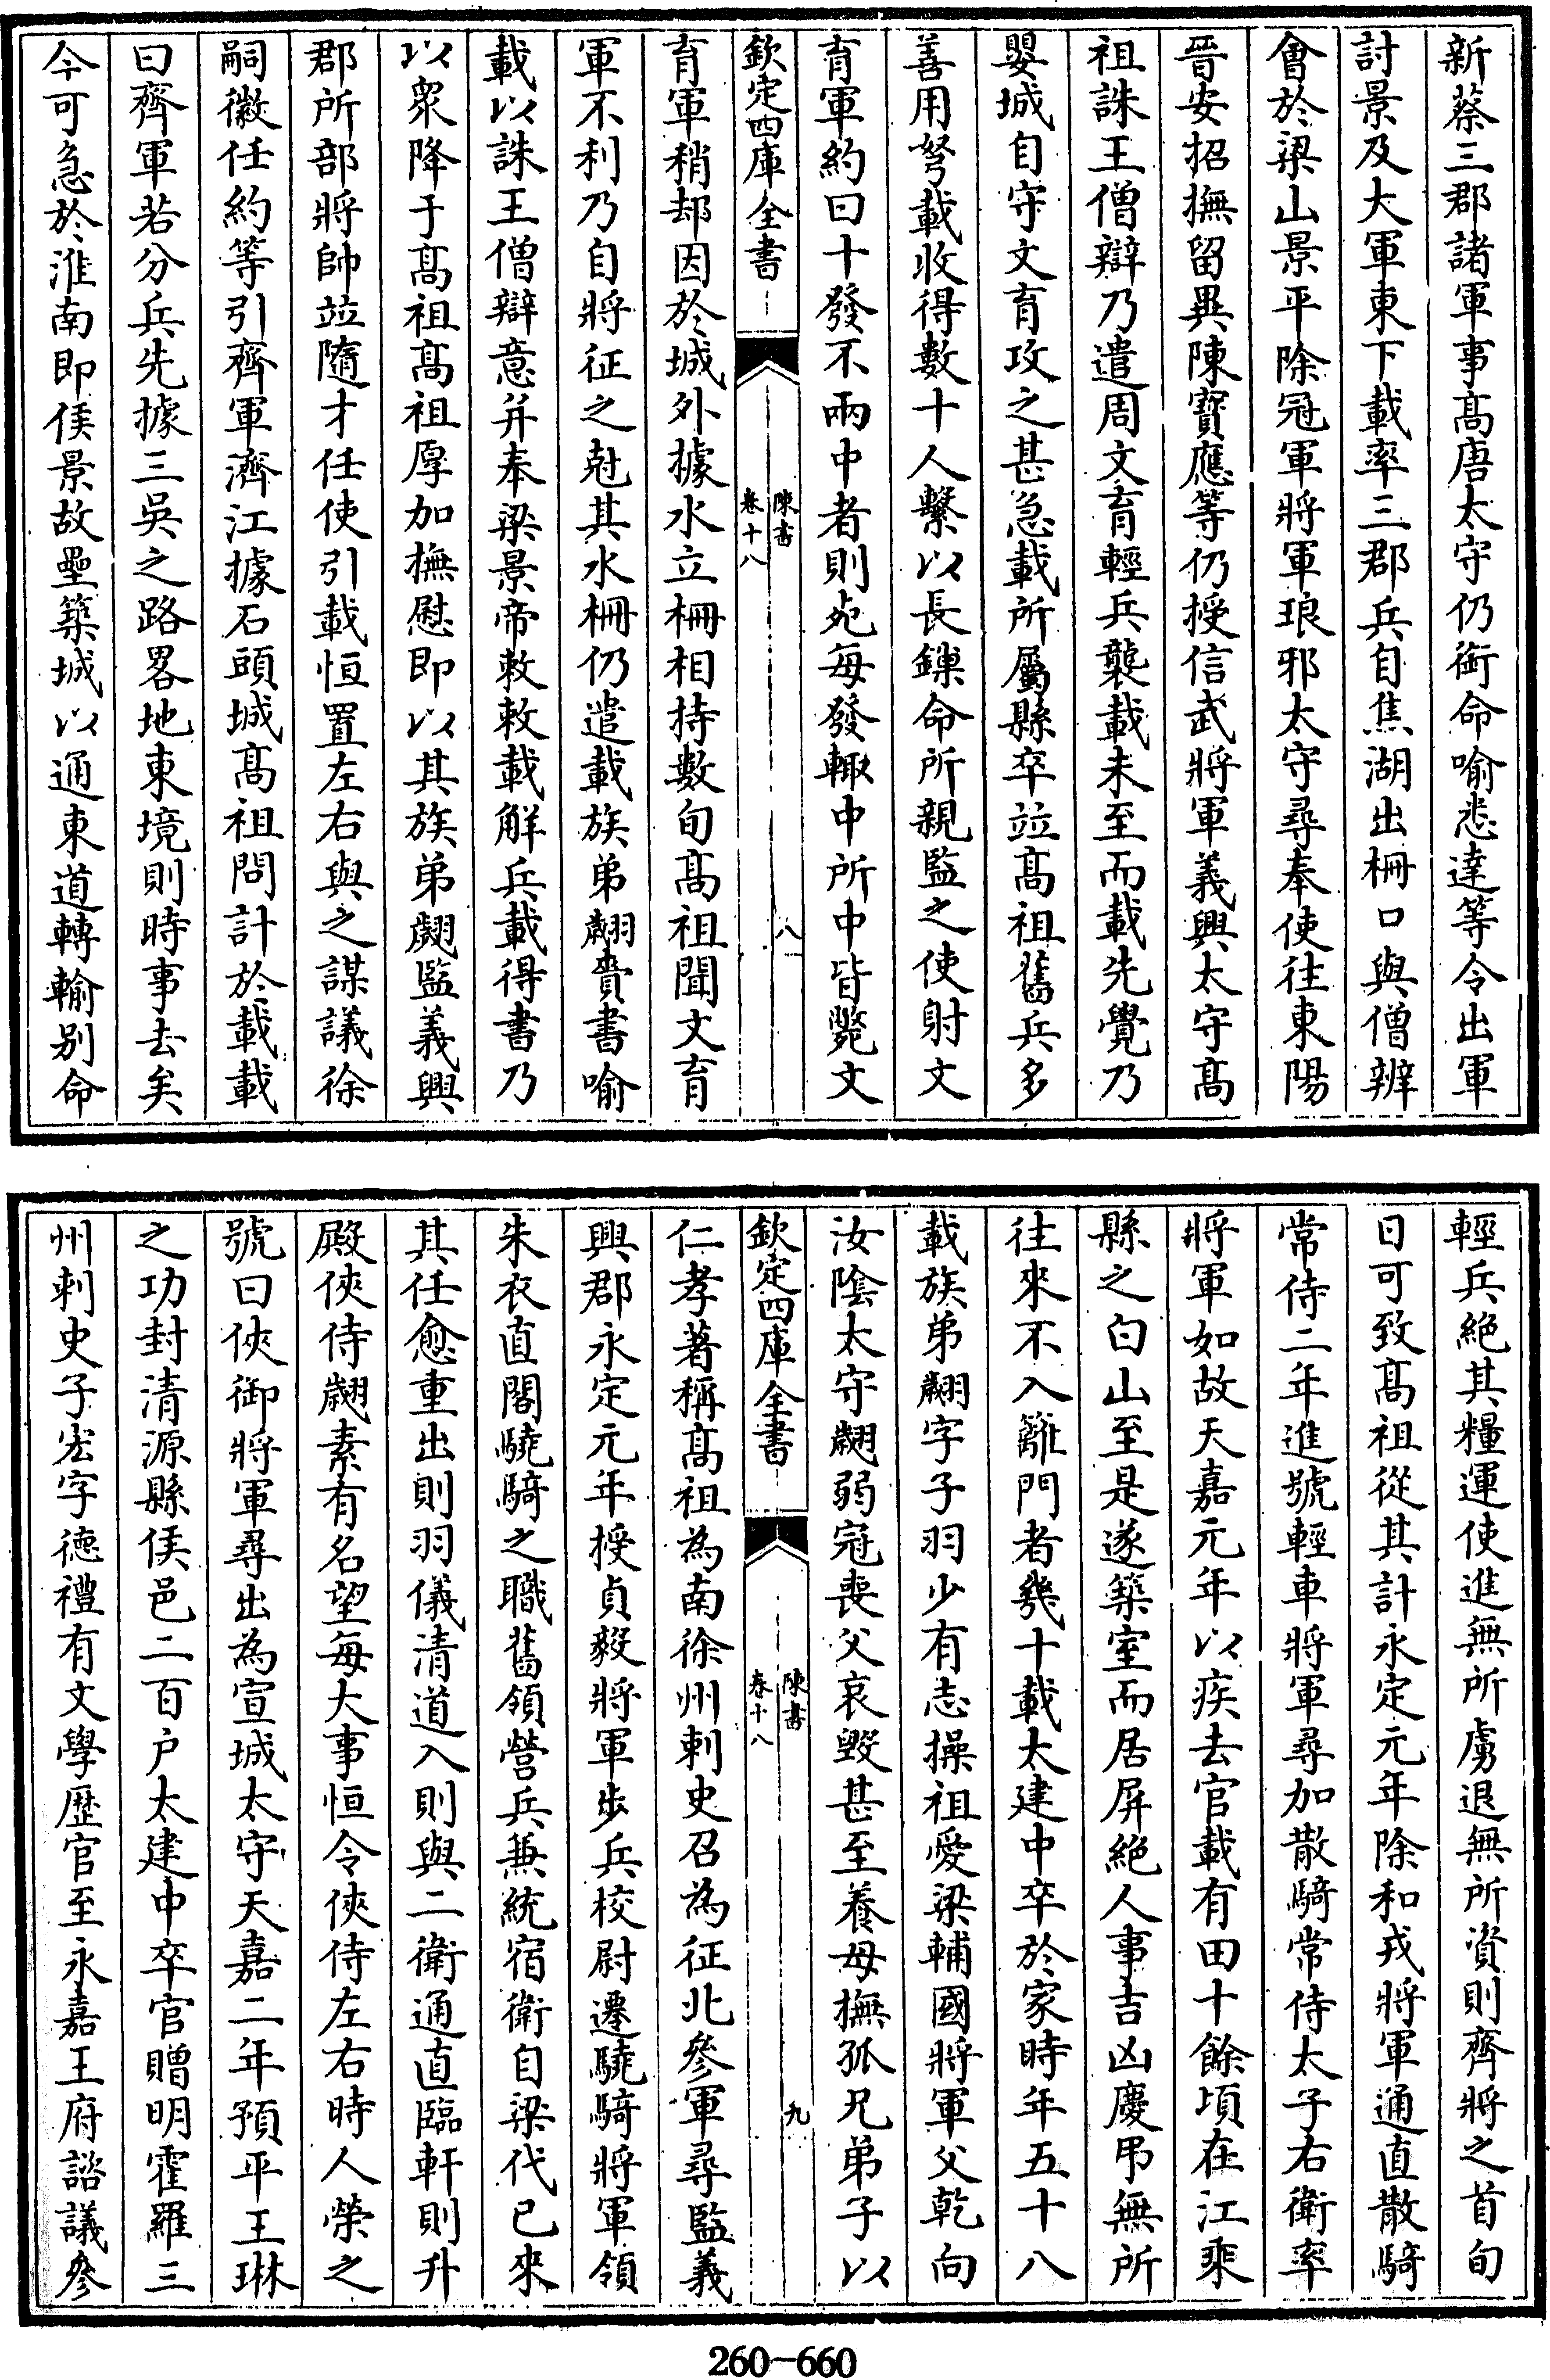 新蔡三郡諸軍事髙唐太守仍銜命喻悉達等令出軍
討景及大軍東下載率三郡兵自焦湖出柵口與僧辨
會於梁山景平除冠軍將軍琅邪太守尋奉使往東陽
晉安招撫留異陳寳應等仍授信武將軍義興太守髙
祖誅王僧辯乃遣周文育輕兵襲載未至而載先覺乃
嬰城自守文育攻之甚急載所屬縣卒竝髙祖舊兵多
善用弩載收得數十人繫以長鏁命所親監之使射文
育軍約曰十發不兩中者則死每發輙中所中皆斃文
欽定四庫全書
陳書
卷十八
八
育軍稍却因於城外據水立柵相持數旬髙祖聞文育
軍不利乃自將征之尅其水柵仍遣載族弟翽賫書喻
載以誅王僧辯意并奉梁景帝敕敕載解兵載得書乃
以衆降于髙祖髙祖厚加撫慰即以其族弟翽監義興
郡所部將帥竝隨才任使引載恒置左右與之謀議徐
嗣徽任約等引齊軍濟江據石頭城髙祖問計於載載
曰齊軍若分兵先據三吳之路畧地東境則時事去矣
今可急於淮南即侯景故壘築城以通東道轉輸别命
輕兵絶其糧運使進無所虜退無所資則齊將之首旬
日可致髙祖從其計永定元年除和戎將軍通直散騎
常侍二年進號輕車將軍尋加散騎常侍太子右衛率
將軍如故天嘉元年以疾去官載有田十餘頃在江乘
縣之白山至是遂築室而居屏絶人事吉凶慶弔無所
往來不入籬門者㡬十載太建中卒於家時年五十八
載族弟翽字子羽少有志操祖愛梁輔國將軍父乾向
汝陰太守翽弱冠喪父哀毁甚至養母撫孤兄弟子以
欽定四庫全書
陳書
卷十八
九
仁孝著稱髙祖為南徐州刺史召為征北參軍尋監義
興郡永定元年授貞毅將軍步兵校尉遷驍騎將軍領
朱衣直閣驍騎之職舊領營兵兼統宿衛自梁代已來
其任愈重出則羽儀清道入則與二衛通直臨軒則升
殿俠侍翽素有名望每大事恒令俠侍左右時人榮之
號曰俠御將軍尋出為宣城太守天嘉二年預平王琳
之功封清源縣侯邑二百户太建中卒官贈明霍羅三
州刺史子宏字徳禮有文學歴官至永嘉王府諮議參
260-660